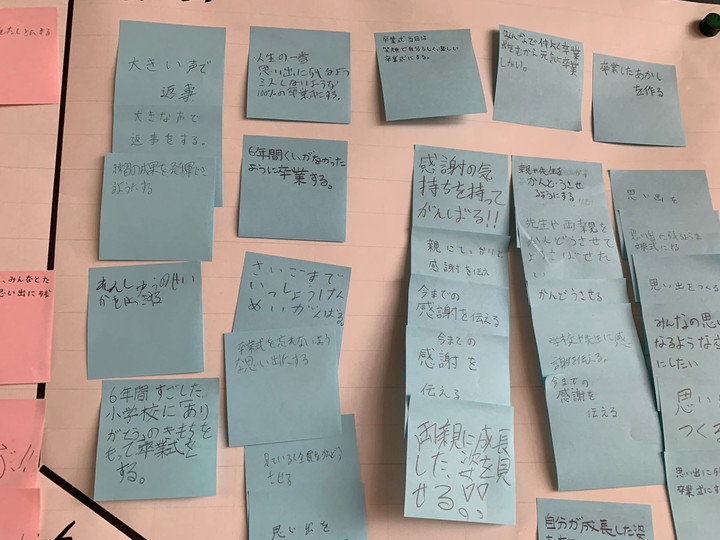 大きい声で
返事
大きな声で
返事をする。
練習の成果を発揮でき
るようにする
人生の一番
思い出に残るよう
100%の卒業式にする。
6年間くいがなかった
ように卒業する。
卒業式当日は
笑顔で自分らしく、楽しい
卒業式にする。
みんなで仲よく卒業
卒業したあかし
を作る
さいごまで
いっしょうけん
めいがんばる
卒業式を忘れないよう
な思い出にする
6年間すごした
小学校に「あり
がとう」のきもちを
もって卒業式を
する。
思い出を
感謝の気
持ちを持って
がんばる!!
感謝を伝え
今までの
感謝を伝える
今までの
感謝を
伝える
両親に成長
した姿を見
せる
親や先生を
かんどうさせ
るようにする
先生や両親を
かんどうさせて
よろこばせた
い
かんどうさせる
学校や先生に感
謝を伝える。
今までの
感謝を
伝える
自分が成長した姿
思い出を
思い出に残るような
思い出をつくる
みんなの思い
なるような
にしたい
思い
つくる
思い出に
卒業式に
、みんなとた
思い出に残